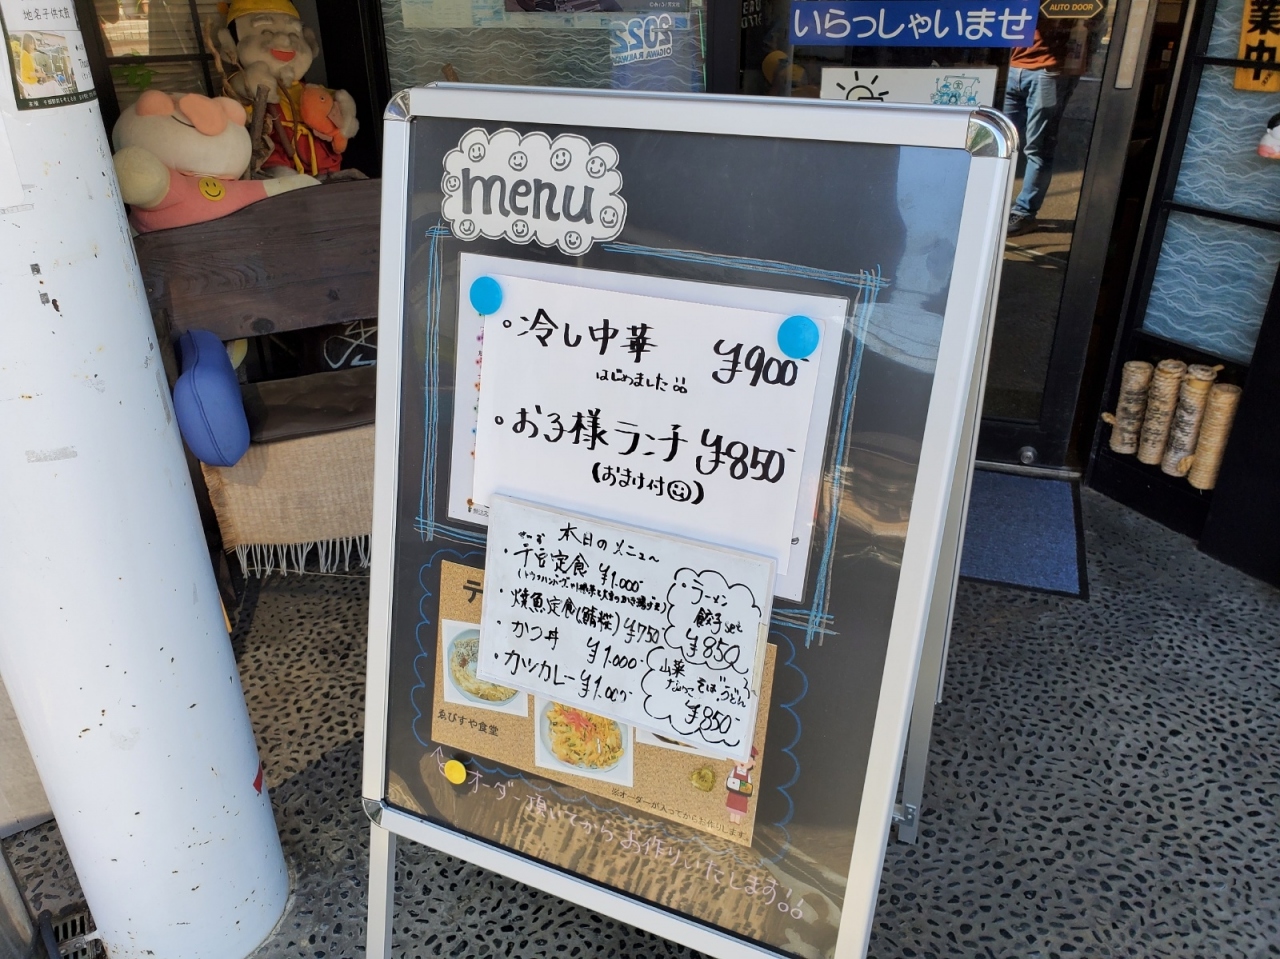 いらっしゃいませ
AUTO DOOR
業中
2022
menu
・冷し中華 ¥900-
はじめました
・お子様ランチ ¥850-
(おまけ付)
本日のメニュー
・千宮定食 ¥1.000-
・焼魚定食(鯖 ¥750
・かつ丼 ¥1.000-
・カツカレー ¥1.000-
・ラーメン
餃子set
¥850
山菜
そば・うどん
¥850-
ゑびすや食堂
※オーダーが入ってからお作りします。
オーダー頂いてからお作りいたします!!